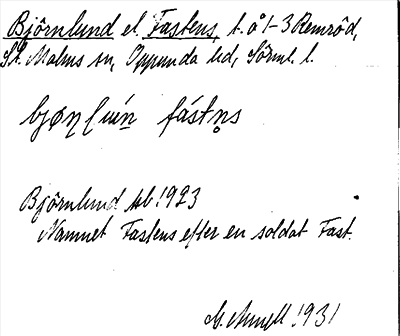 Björnlund el. Fastens, t. å 1-3 Remröd,
St. Malms sn, Oppunda hd, Sörml. l.
fástn̥s
Björnlund jb 1923
Namnet Fastens efter en soldat Fast.
1931